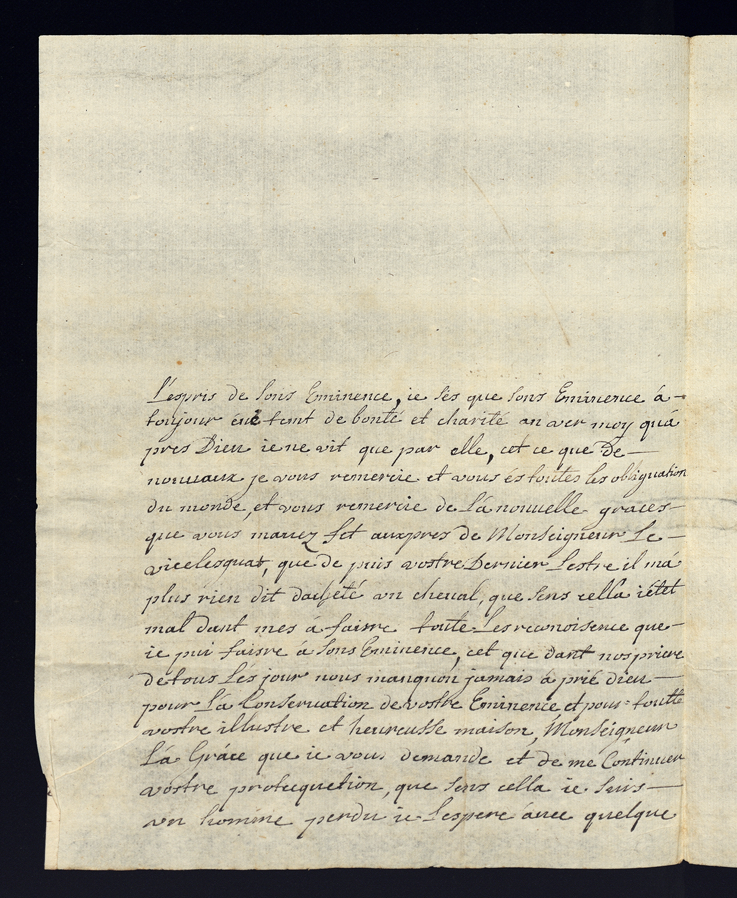 L'espris de sons Eminence, ie sés que sons Eminence á-
toujour eut tent de bonté et charité an ver moy quá
pres Dieu ie ne vit que par elle, cet ce que De-
nouuaux je vous remercie et vous és toutes les obliguation
du monde, et vous remercie de Lá nouuelle graces-
que vous mauez fet auxpres de Monseigneur Le-
vicelesguat, que de puis vostre Dernier Lestre il má
plus rien dit dacheté un cheual, que sens cella iétet
mal dant mes á faisre toute Les reconoisence que-
ie pui faisre á sons Eminence, cet que dant nos priere
de tous Lés jour nous manquon jamais á prié dieu-
pour Lá Conseruation de vostre Eminence et pour=toutte
vostre illustre et heureusse maison, Monseigneur
Lá Gráce que ie vous demande et de me Continuer
vostre protecquetion, que sens cella ie suis-
un homme perdu ie L'espere auec quelque